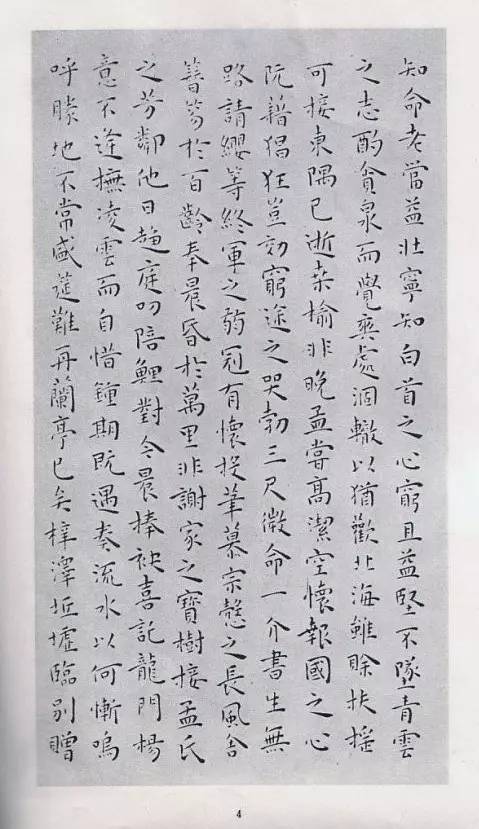 知命老當益壯寧知白首之心窮且益堅不墜青雲
之志酌貪泉而覺爽處涸轍以猶歡北海雖賒扶搖
可接東隅已逝桑榆非晚孟嘗高潔空懷報國之心
阮籍猖狂豈効窮途之哭勃三尺微命一介書生無
路請纓等終軍之弱冠有懷投筆慕宗愨之長風舍
簪笏於百齡奉晨昏於萬里非謝家之寶樹接孟氏
之芳鄰他日趨庭叨陪鯉對今晨捧袂喜託龍門楊
意不逢撫凌雲而自惜鐘期既遇奏流水以何慚嗚
呼勝地不常盛筵難再蘭亭已矣梓澤坵墟臨別贈
4